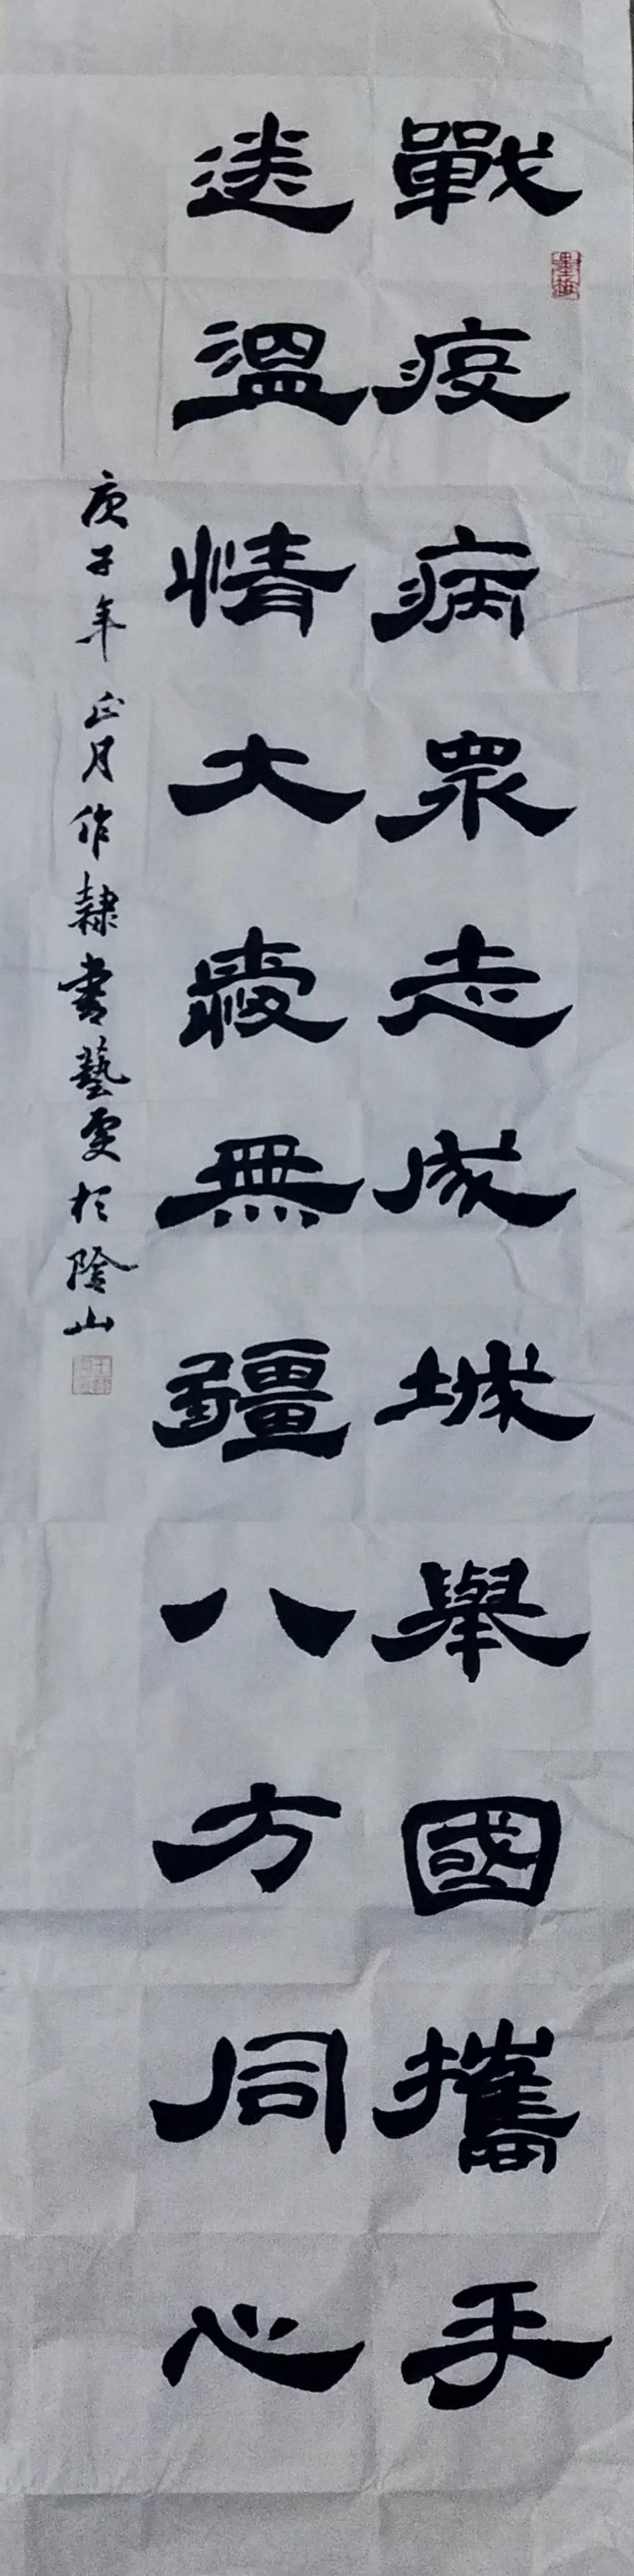 戰疫病眾志成城舉國攜手
送溫情大愛無疆八方同心
庚子年正月作隸書藝雯於陰山